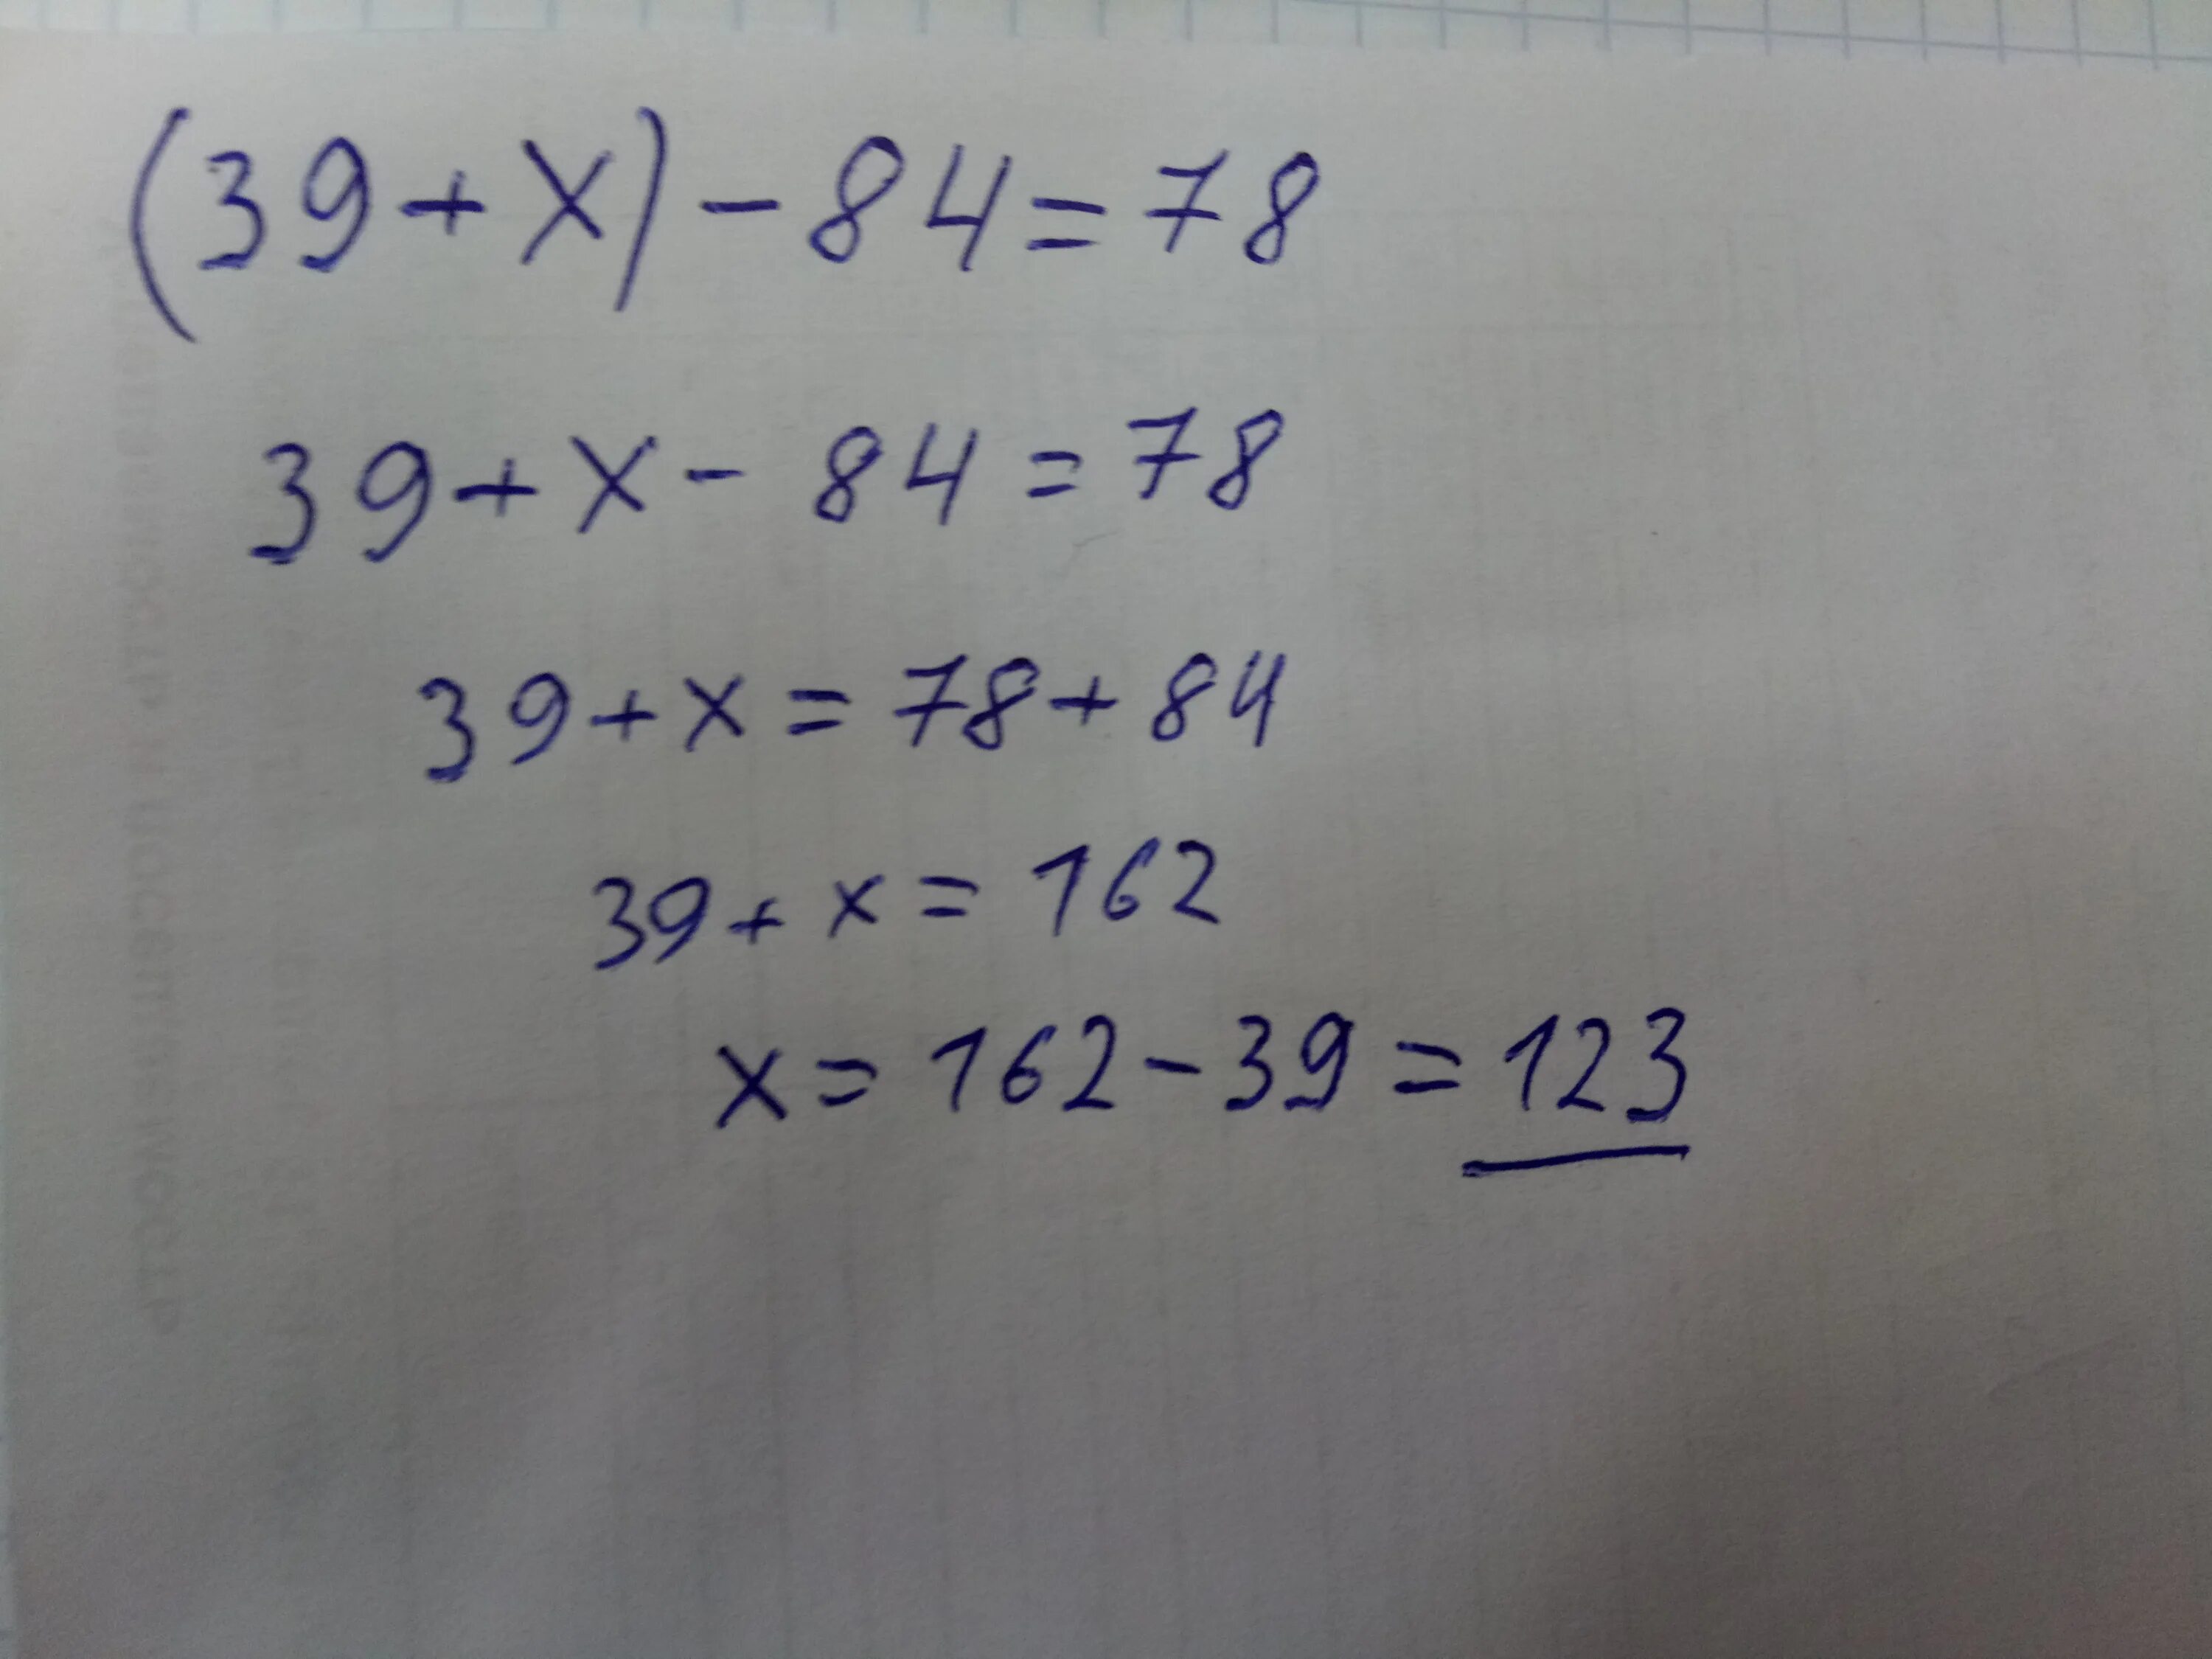 (39+x)-84=78
39+x-84=78
39+x=78+84
39+x=162
x=162-39=123